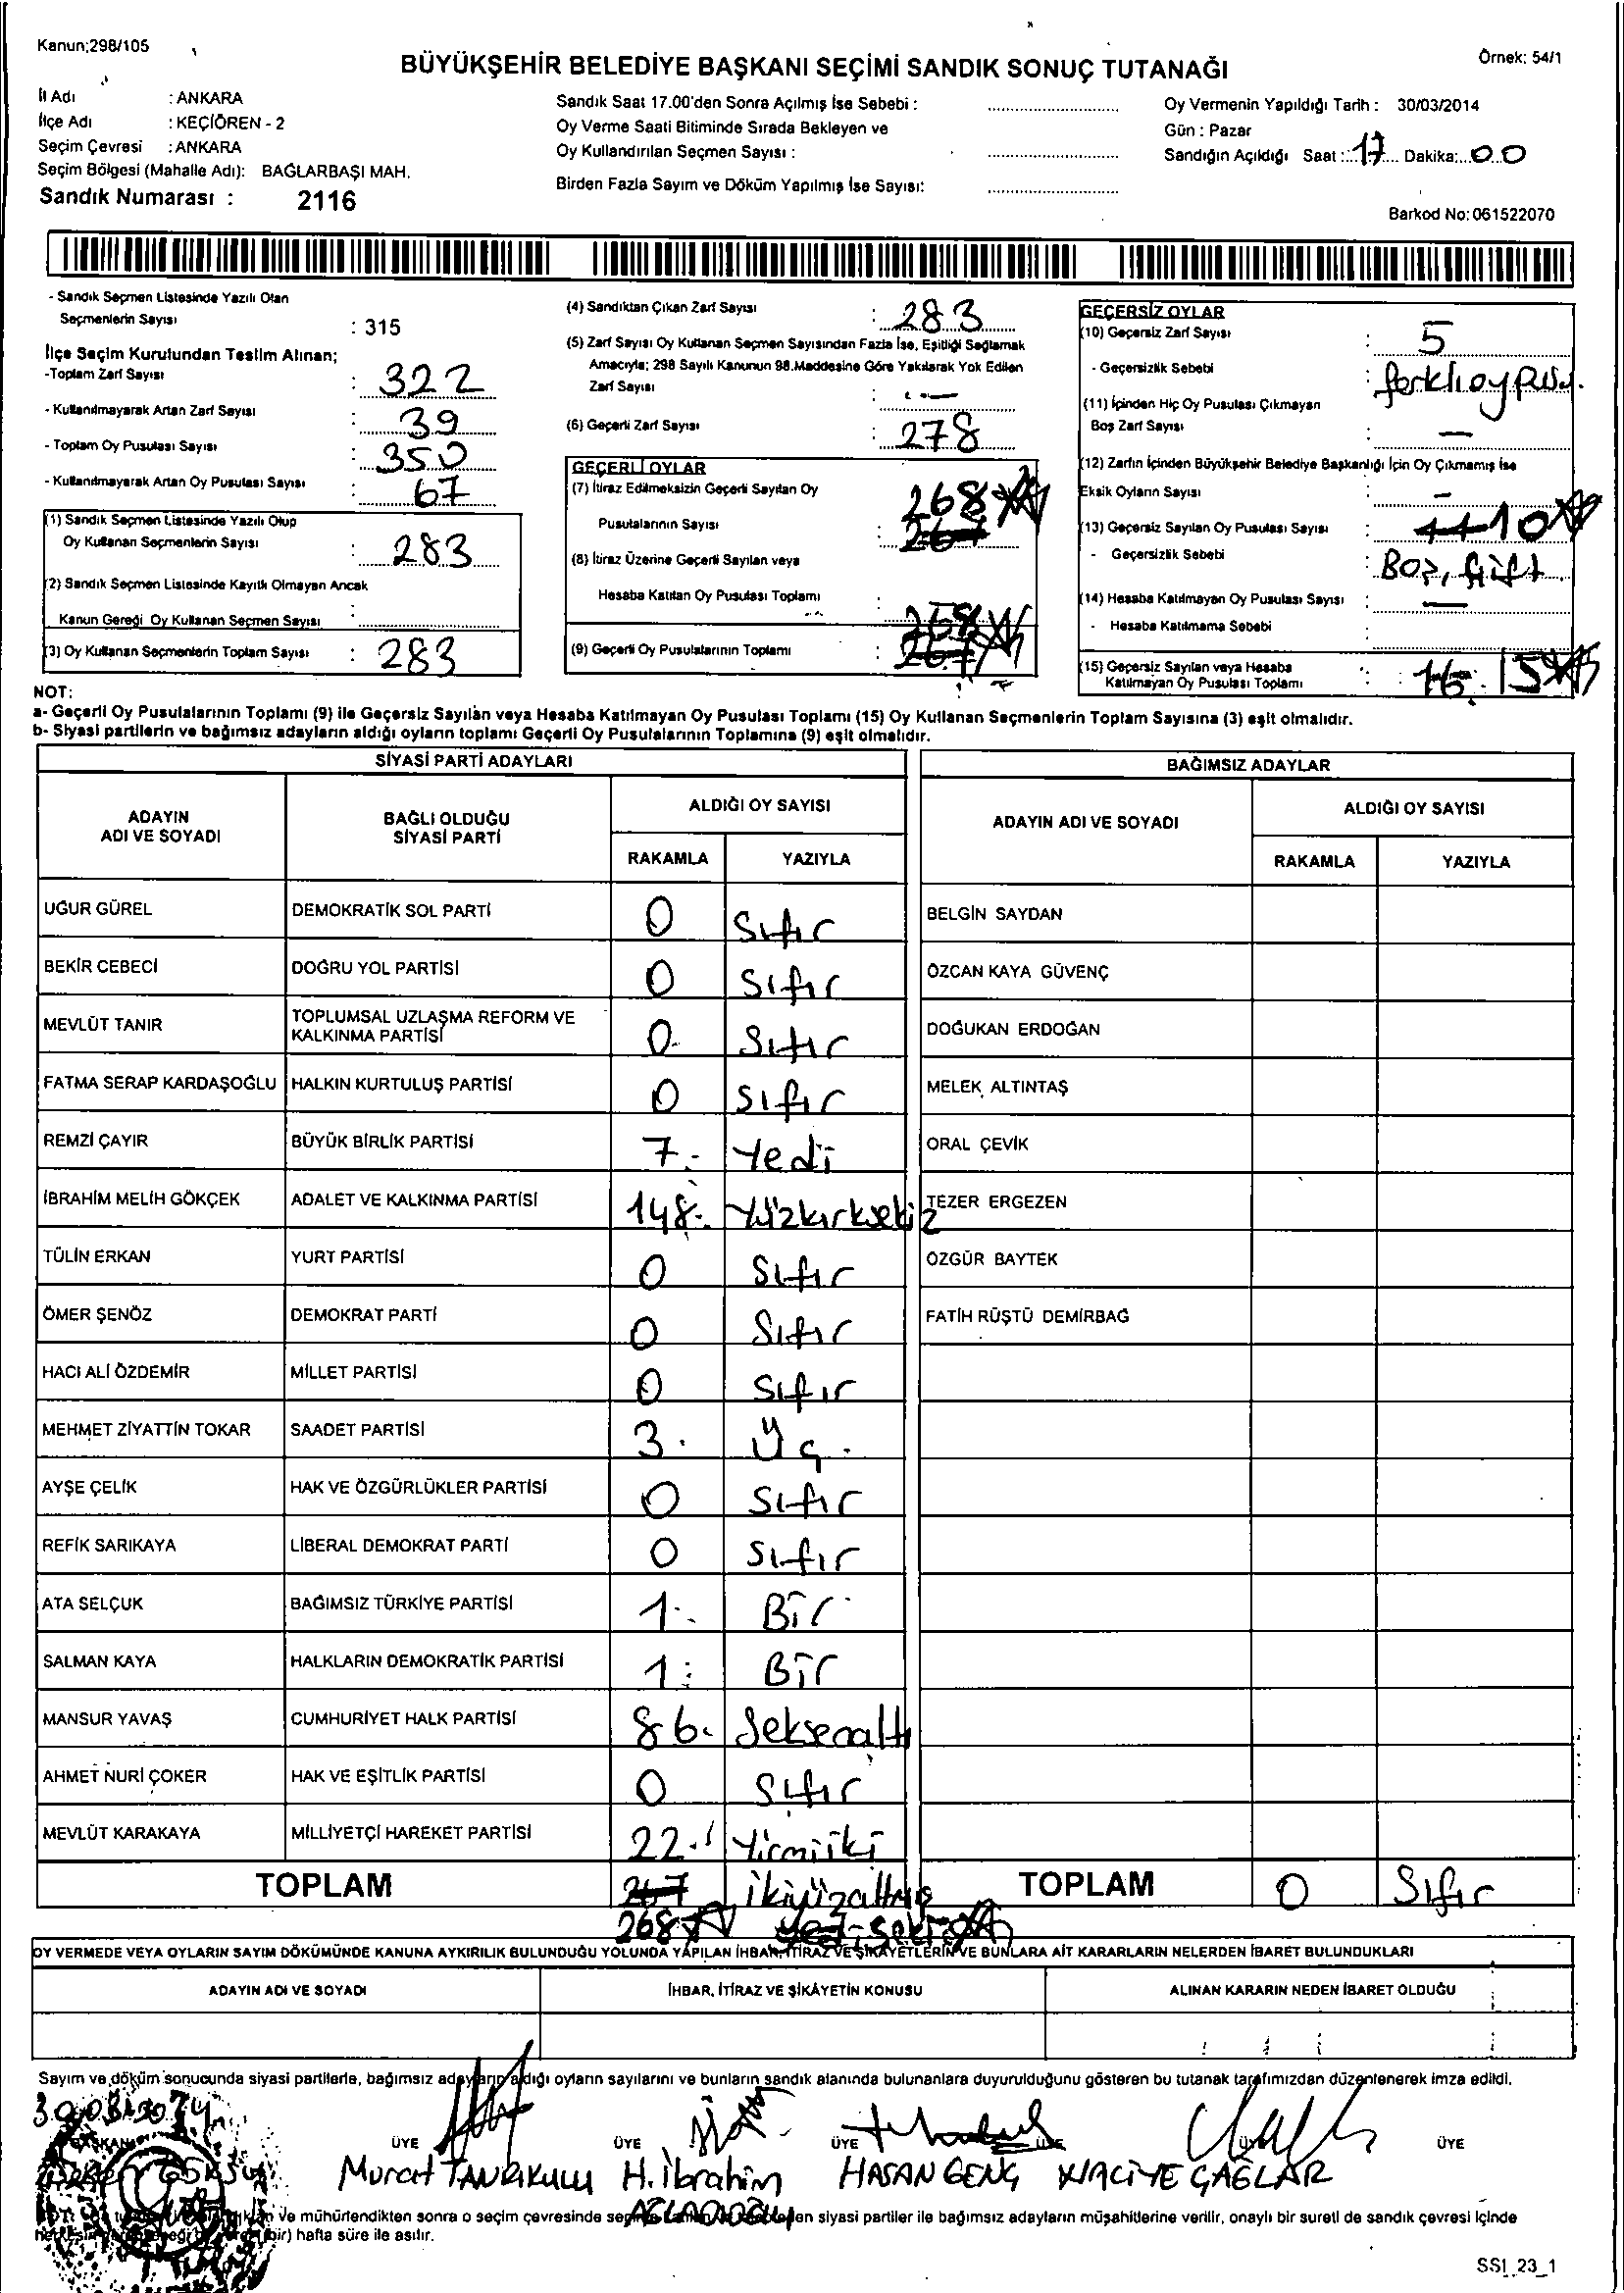 Kanun;298/105
Örnek: 54/1
BÜYÜKŞEHİR BELEDİYE BAŞKANI SEÇİMİ SANDIK SONUÇ TUTANAĞI
İl Adı : ANKARA
İlçe Adı : KEÇİÖREN - 2
Seçim Çevresi : ANKARA
Seçim Bölgesi (Mahalle Adı): BAĞLARBAŞI MAH.
Sandık Numarası : 2116
Sandık Saat 17.00'den Sonra Açılmış İse Sebebi :
Oy Verme Saati Bitiminde Sırada Bekleyen ve
Oy Kullandırılan Seçmen Sayısı :
Birden Fazla Sayım ve Döküm Yapılmış İse Sayısı:
Oy Vermenin Yapıldığı Tarih : 30/03/2014
Gün : Pazar
Sandığın Açıldığı Saat : 17 Dakika: 00
Barkod No: 061522070
- Sandık Seçmen Listesinde Yazılı Olan
Seçmenlerin Sayısı : 315
İlçe Seçim Kurulundan Teslim Alınan;
-Toplam Zarf Sayısı : 322
- Kullanılmayarak Artan Zarf Sayısı : 39
- Toplam Oy Pusulası Sayısı : 350
- Kullanılmayarak Artan Oy Pusulası Sayısı : 67
(1) Sandık Seçmen Listesinde Yazılı Olup
Oy Kullanan Seçmenlerin Sayısı : 283
(2) Sandık Seçmen Listesinde Kayıtlı Olmayan Ancak
Kanun Gereği Oy Kullanan Seçmen Sayısı :
(3) Oy Kullanan Seçmenlerin Toplam Sayısı : 283
(4) Sandıktan Çıkan Zarf Sayısı : 283
(5) Zarf Sayısı Oy Kullanan Seçmen Sayısından Fazla İse, Eşitliği Sağlamak
Amacıyla; 298 Sayılı Kanunun 98.Maddesine Göre Yakılarak Yok Edilen
Zarf Sayısı : -
(6) Geçerli Zarf Sayısı : 278
GEÇERLİ OYLAR
(7) İtiraz Edilmeksizin Geçerli Sayılan Oy 268
Pusulalarının Sayısı : 267
(8) İtiraz Üzerine Geçerli Sayılan veya
Hesaba Katılan Oy Pusulası Toplamı :
268
(9) Geçerli Oy Pusulalarının Toplamı : 267
GEÇERSİZ OYLAR
(10) Geçersiz Zarf Sayısı : 5
- Geçersizlik Sebebi : farklı oy pus.
(11) İçinden Hiç Oy Pusulası Çıkmayan
Boş Zarf Sayısı : -
(12) Zarfın İçinden Büyükşehir Belediye Başkanlığı İçin Oy Çıkmamış İse
Eksik Oyların Sayısı : -
(13) Geçersiz Sayılan Oy Pusulası Sayısı : 11 10
- Geçersizlik Sebebi : Boş, Çift
(14) Hesaba Katılmayan Oy Pusulası Sayısı : -
- Hesaba Katılmama Sebebi :
(15) Geçersiz Sayılan veya Hesaba
Katılmayan Oy Pusulası Toplamı : 16 15
NOT:
a- Geçerli Oy Pusulalarının Toplamı (9) ile Geçersiz Sayılan veya Hesaba Katılmayan Oy Pusulası Toplamı (15) Oy Kullanan Seçmenlerin Toplam Sayısına (3) eşit olmalıdır.
b- Siyasi partilerin ve bağımsız adayların aldığı oyların toplamı Geçerli Oy Pusulalarının Toplamına (9) eşit olmalıdır.
SİYASİ PARTİ ADAYLARI
ADAYIN ADI VE SOYADI BAĞLI OLDUĞU SİYASİ PARTİ ALDIĞI OY SAYISI
RAKAMLA YAZIYLA
UĞUR GÜREL DEMOKRATİK SOL PARTİ 0 Sıfır
BEKİR CEBECİ DOĞRU YOL PARTİSİ 0 Sıfır
MEVLÜT TANIR TOPLUMSAL UZLAŞMA REFORM VE KALKINMA PARTİSİ 0 Sıfır
FATMA SERAP KARDAŞOĞLU HALKIN KURTULUŞ PARTİSİ 0 Sıfır
REMZİ ÇAYIR BÜYÜK BİRLİK PARTİSİ 7 Yedi
İBRAHİM MELİH GÖKÇEK ADALET VE KALKINMA PARTİSİ 148 Yüzkırksekiz
TÜLİN ERKAN YURT PARTİSİ 0 Sıfır
ÖMER ŞENÖZ DEMOKRAT PARTİ 0 Sıfır
HACI ALİ ÖZDEMİR MİLLET PARTİSİ 0 Sıfır
MEHMET ZİYATTİN TOKAR SAADET PARTİSİ 3. Üç.
AYŞE ÇELİK HAK VE ÖZGÜRLÜKLER PARTİSİ 0 Sıfır
REFİK SARIKAYA LİBERAL DEMOKRAT PARTİ 0 Sıfır
ATA SELÇUK BAĞIMSIZ TÜRKİYE PARTİSİ 1 Bir
SALMAN KAYA HALKLARIN DEMOKRATİK PARTİSİ 1 Bir
MANSUR YAVAŞ CUMHURİYET HALK PARTİSİ 86. Seksenaltı
AHMET NURİ ÇOKER HAK VE EŞİTLİK PARTİSİ 0 Sıfır
MEVLÜT KARAKAYA MİLLİYETÇİ HAREKET PARTİSİ 22. Yirmiiki
TOPLAM 267 ikiyüzaltmış
268 yedi sekiz
BAĞIMSIZ ADAYLAR
ADAYIN ADI VE SOYADI ALDIĞI OY SAYISI
RAKAMLA YAZIYLA
BELGİN SAYDAN
ÖZCAN KAYA GÜVENÇ
DOĞUKAN ERDOĞAN
MELEK ALTINTAŞ
ORAL ÇEVİK
TEZER ERGEZEN
ÖZGÜR BAYTEK
FATİH RÜŞTÜ DEMİRBAĞ
TOPLAM 0 Sıfır
OY VERMEDE VEYA OYLARIN SAYIM DÖKÜMÜNDE KANUNA AYKIRILIK BULUNDUĞU YOLUNDA YAPILAN İHBAR, İTİRAZ VE ŞİKAYETLERİN VE BUNLARA AİT KARARLARIN NELERDEN İBARET BULUNDUKLARI
ADAYIN ADI VE SOYADI İHBAR, İTİRAZ VE ŞİKÂYETİN KONUSU ALINAN KARARIN NEDEN İBARET OLDUĞU
Sayım ve döküm sonucunda siyasi partilerle, bağımsız adayların aldığı oyların sayılarını ve bunların sandık alanında bulunanlara duyurulduğunu gösteren bu tutanak tarafımızdan düzenlenerek imza edildi.
BAŞKAN ÜYE ÜYE ÜYE ÜYE ÜYE
Murat TANRIKULU H. İbrahim HASAN GENÇ NACİYE ÇAĞLAR
ve mühürlendikten sonra o seçim çevresinde siyasi partiler ile bağımsız adayların müşahitlerine verilir, onaylı bir sureti de sandık çevresi içinde
(bir) hafta süre ile asılır.
SSI_23_1